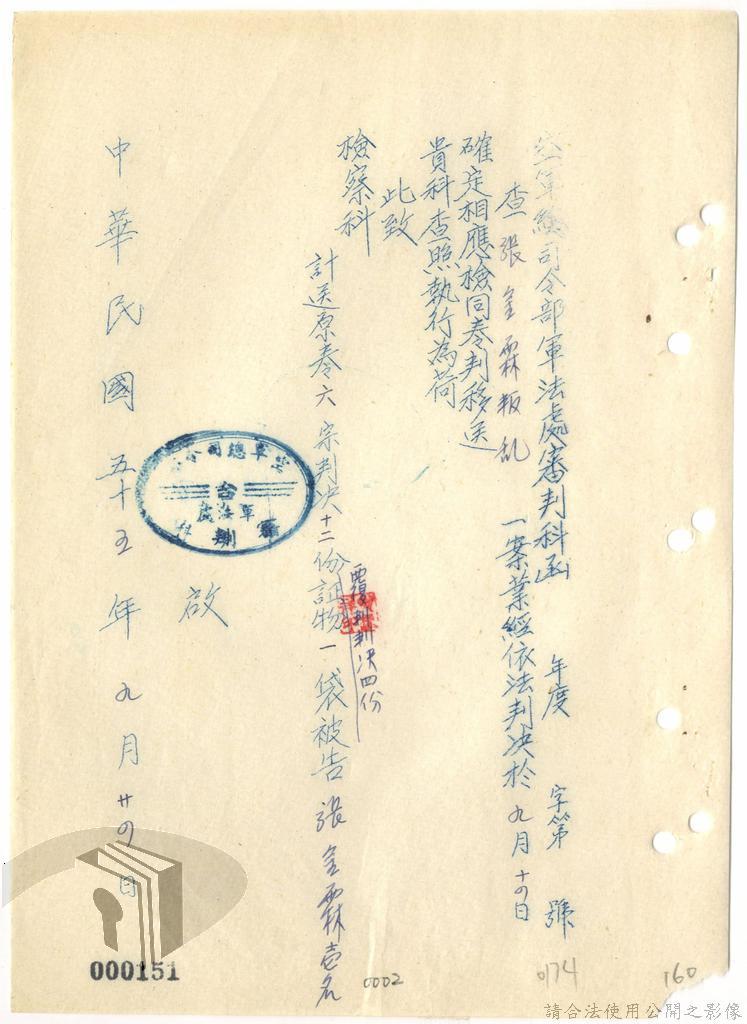 空軍總司令部軍法處審判科函　年度　字第　號
查張金霖叛乱一案業經依法判决於九月十四日
確定相應檢同卷判移送
貴科查照執行為荷
此致
檢察科
計送原卷六宗判决十二份証物一袋被告張金霖壹名
覆判判決四份
啟
空軍總司令部
台
軍法處
中華民國五十五年九月廿四日
000151
0002
0174
160
請合法使用公開之影像